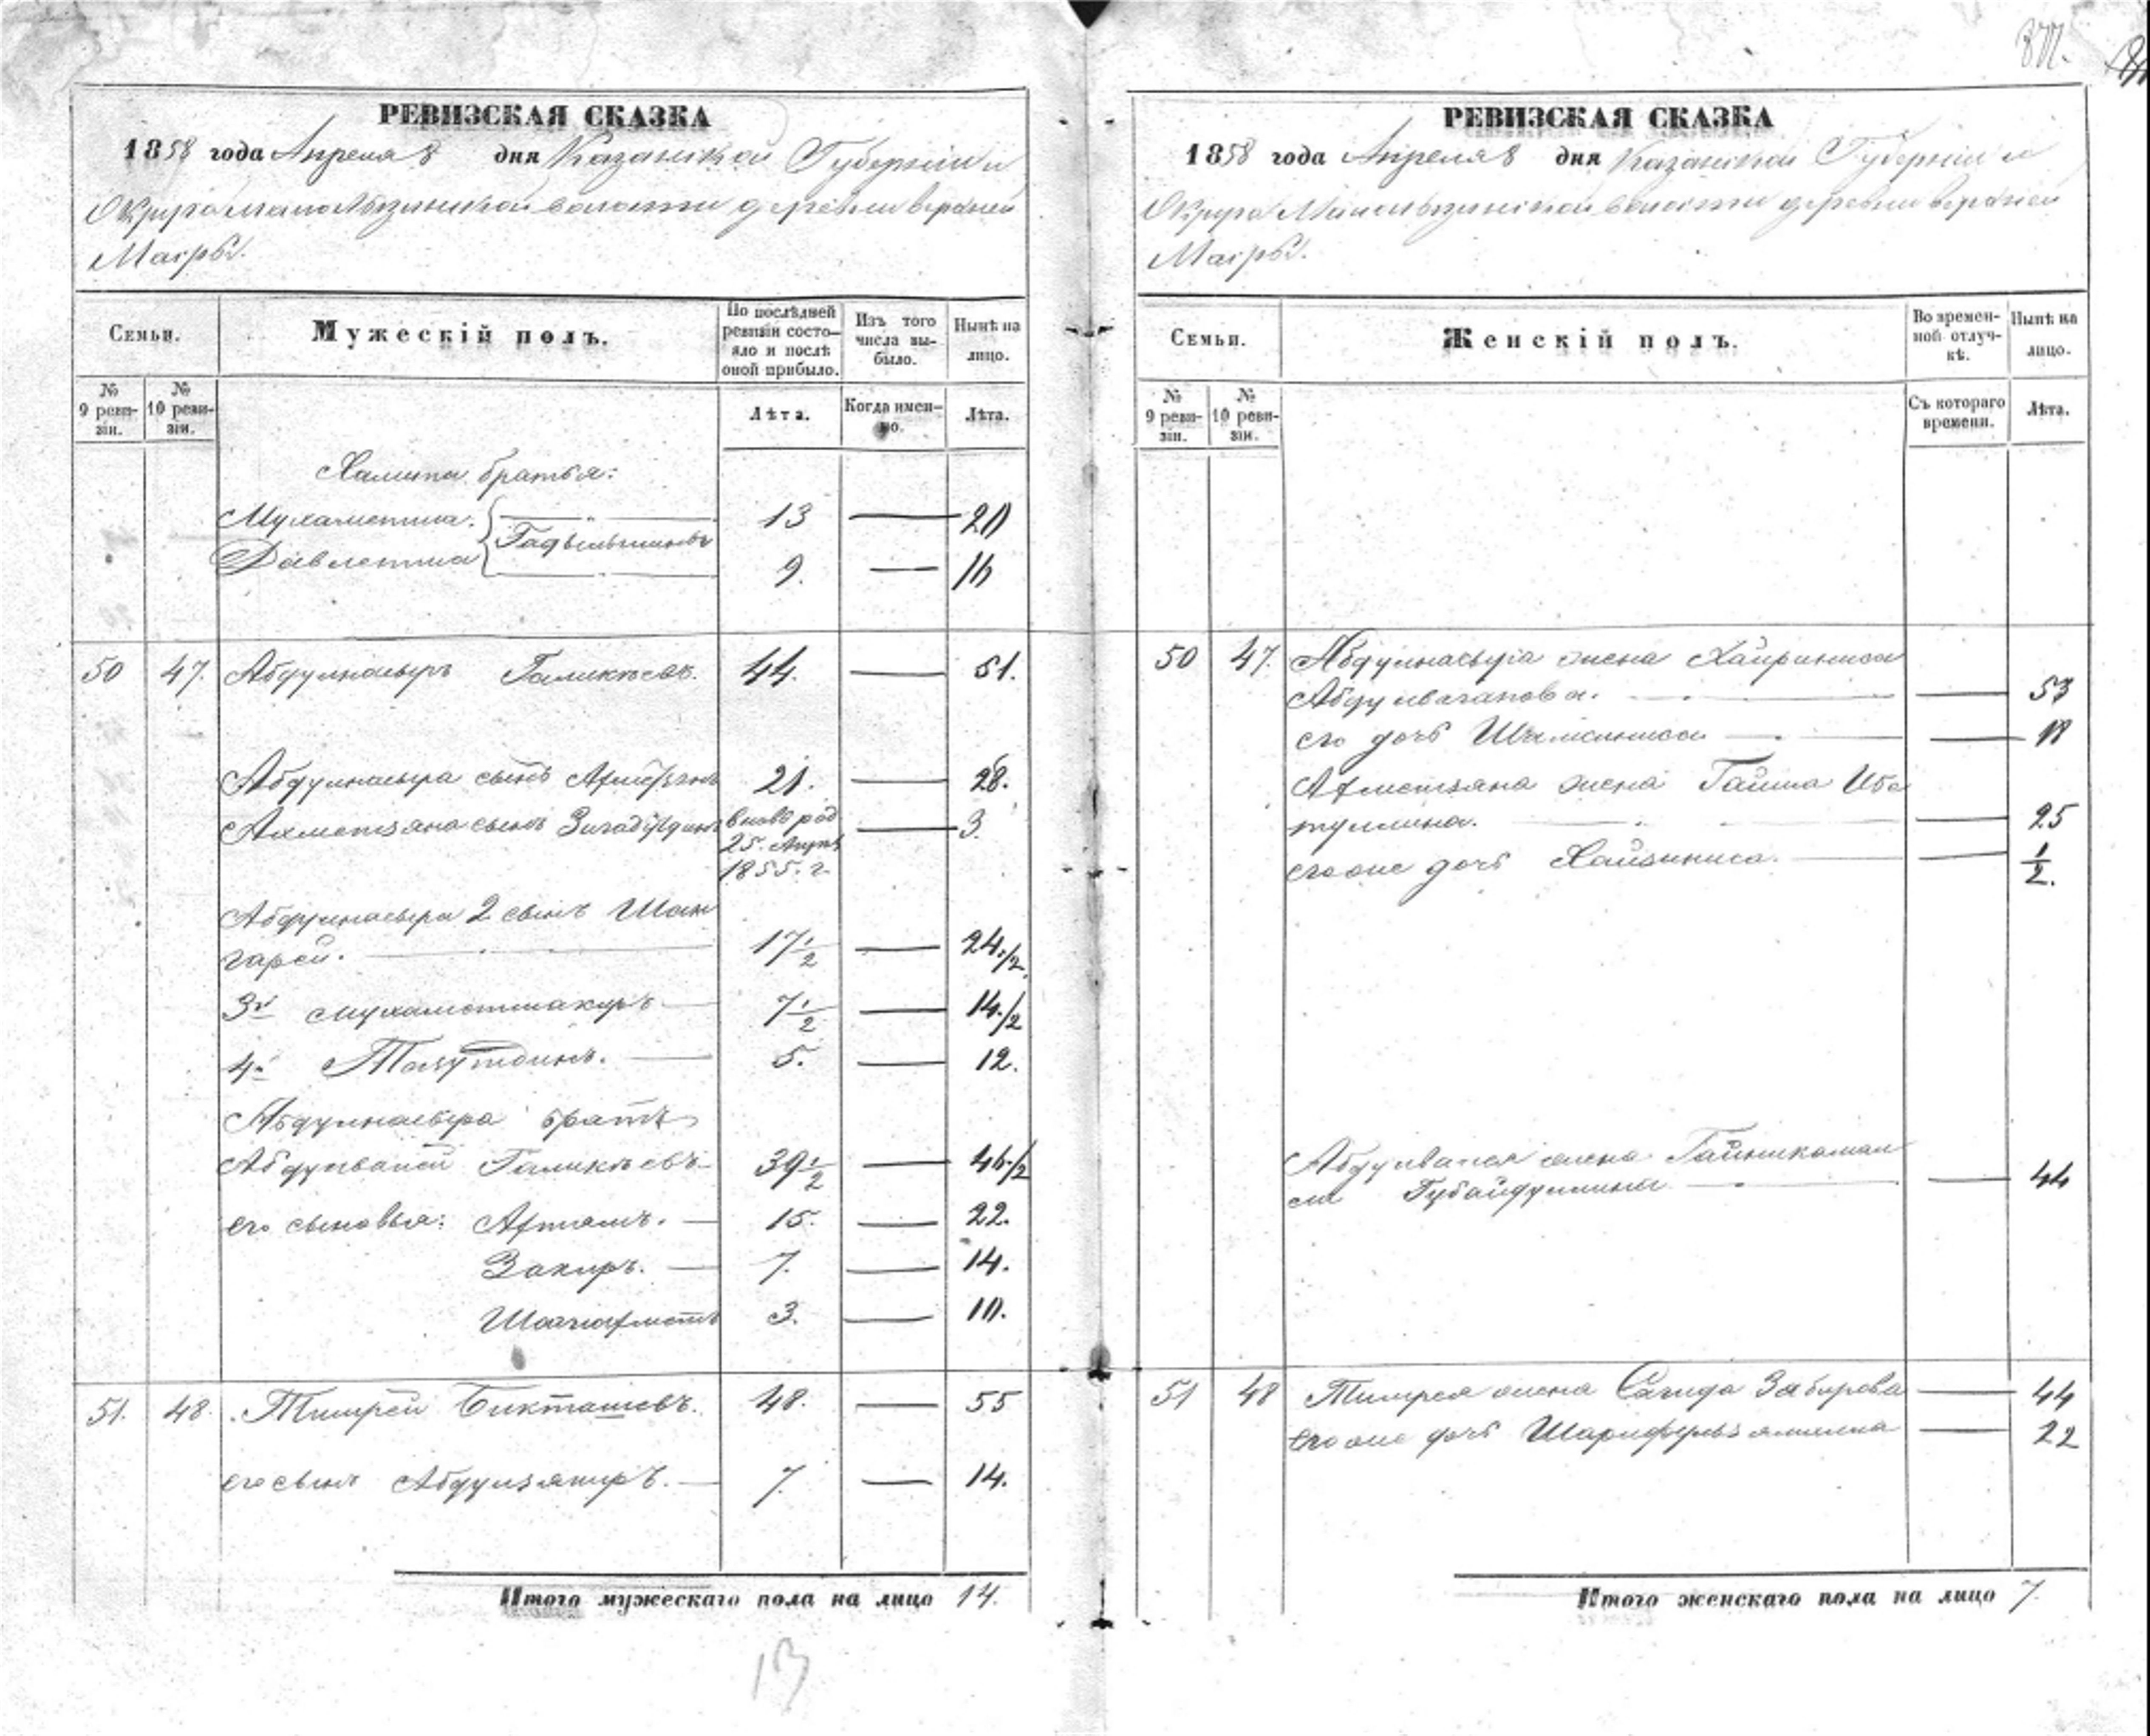 877.
РЕВИЗСКАЯ СКАЗКА
1858 года Апреля 8 дня Казанской Губернии и
Округа волости деревни верхней
РЕВИЗСКАЯ СКАЗКА
1858 года Апреля 8 дня Казанской Губернии и
Округа волости деревни верхней
Семьи.
Мужескій полъ.
По послѣдней ревизіи состо-
яло и послѣ
оной прибыло.
Изъ того
числа вы-
было.
Нынѣ на
лицо.
№
9 реви-
зіи.
№
10 реви-
зіи.
Лѣта.
Когда имен-
но.
Лѣта.
братья:
Мухаметша. 13 — 20
Давлетша 9. — 16
50 47. Абдулнасыръ Галикѣевъ. 44. — 51.
Абдулнасыра сынъ 21. — 28.
Ахметзяна сынъ вновь род — 3.
25. Апрѣ
1855. г.
Абдулнасыра 2 сынъ Шан
гарей. 17 1/2 — 24 1/2
3й Мухаметшакиръ 7 1/2 — 14 1/2
4й 5. — 12.
Абдулнасыра братъ
Абдулвалей Галикѣевъ 39 1/2 — 46 1/2
его сыновья: 15. — 22.
Закиръ. 7. — 14.
Шагиахметъ 3. — 10.
51. 48. Тимрей Бикташевъ. 48. — 55
его сынъ 7. — 14.
Итого мужескаго пола на лицо 14.
13
Семьи.
Женскій полъ.
Во времен-
ной отлуч-
кѣ.
Нынѣ на
лицо.
№
9 реви-
зіи.
№
10 реви-
зіи.
Съ котораго
времени.
Лѣта.
50 47. Абдулнасыра жена Хайриниса
— 53
его дочь Шамсиниса — 18
Ахметзяна жена Гайша Иба
туллина. — 25
его же дочь — 1/2.
Абдулвалея жена Гайникамал
Губайдуллина — 44
51 48 Тимрея жена Сагида Забирова — 44
его же дочь — 22
Итого женскаго пола на лицо 7.